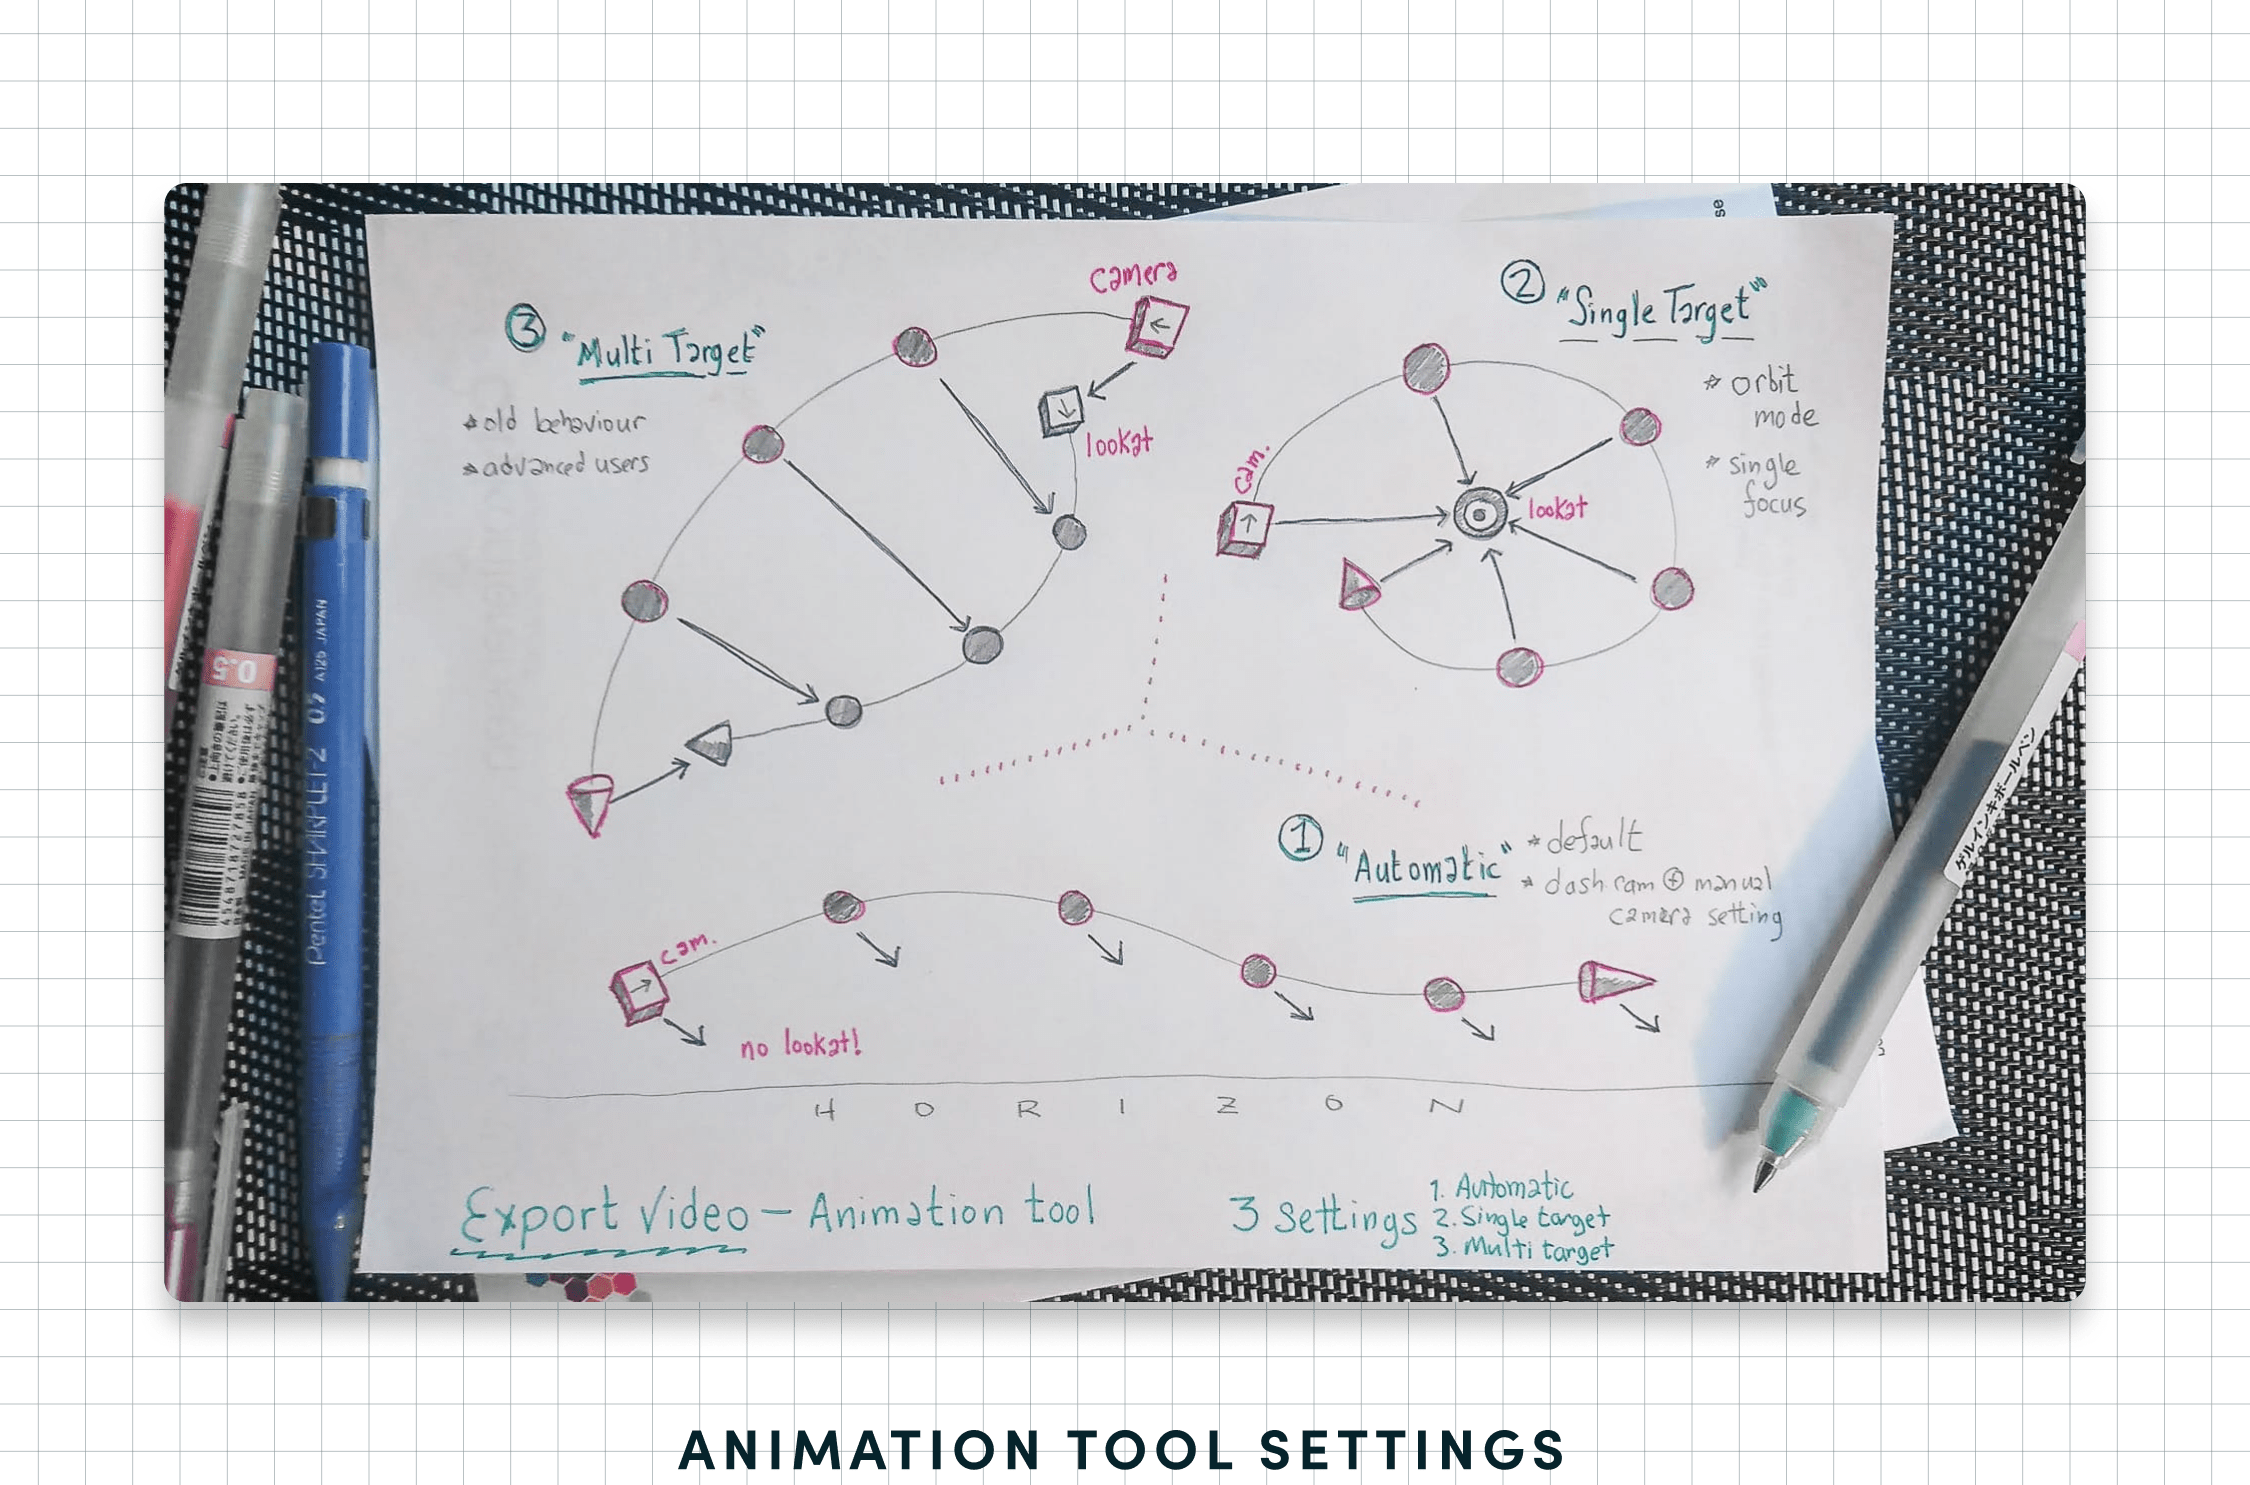 se
camera
③ "Multi Target"
* old behaviour
* advanced users
lookat
② "Single Target"
* orbit
mode
* single
focus
cam.
lookat
① "Automatic"
* default
* dash cam ⊕ manual
camera setting
cam.
no lookat!
H O R I Z O N
Export Video – Animation tool
3 settings
1. Automatic
2. Single target
3. Multi target
0.5
Pentel SHARPLET 2 0.9 A125 JAPAN
4548718727858
ゲルインキボールペン
ANIMATION TOOL SETTINGS